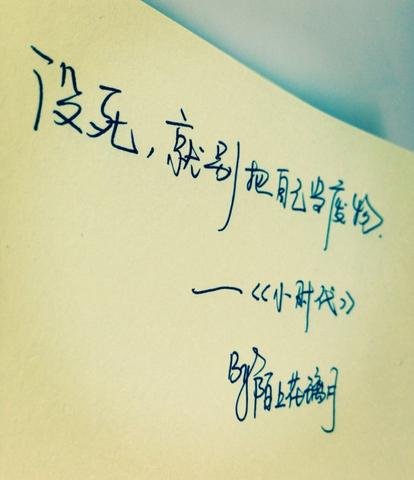 没死，就别把自己当废物.
—《小时代》
By 陌上花漓月